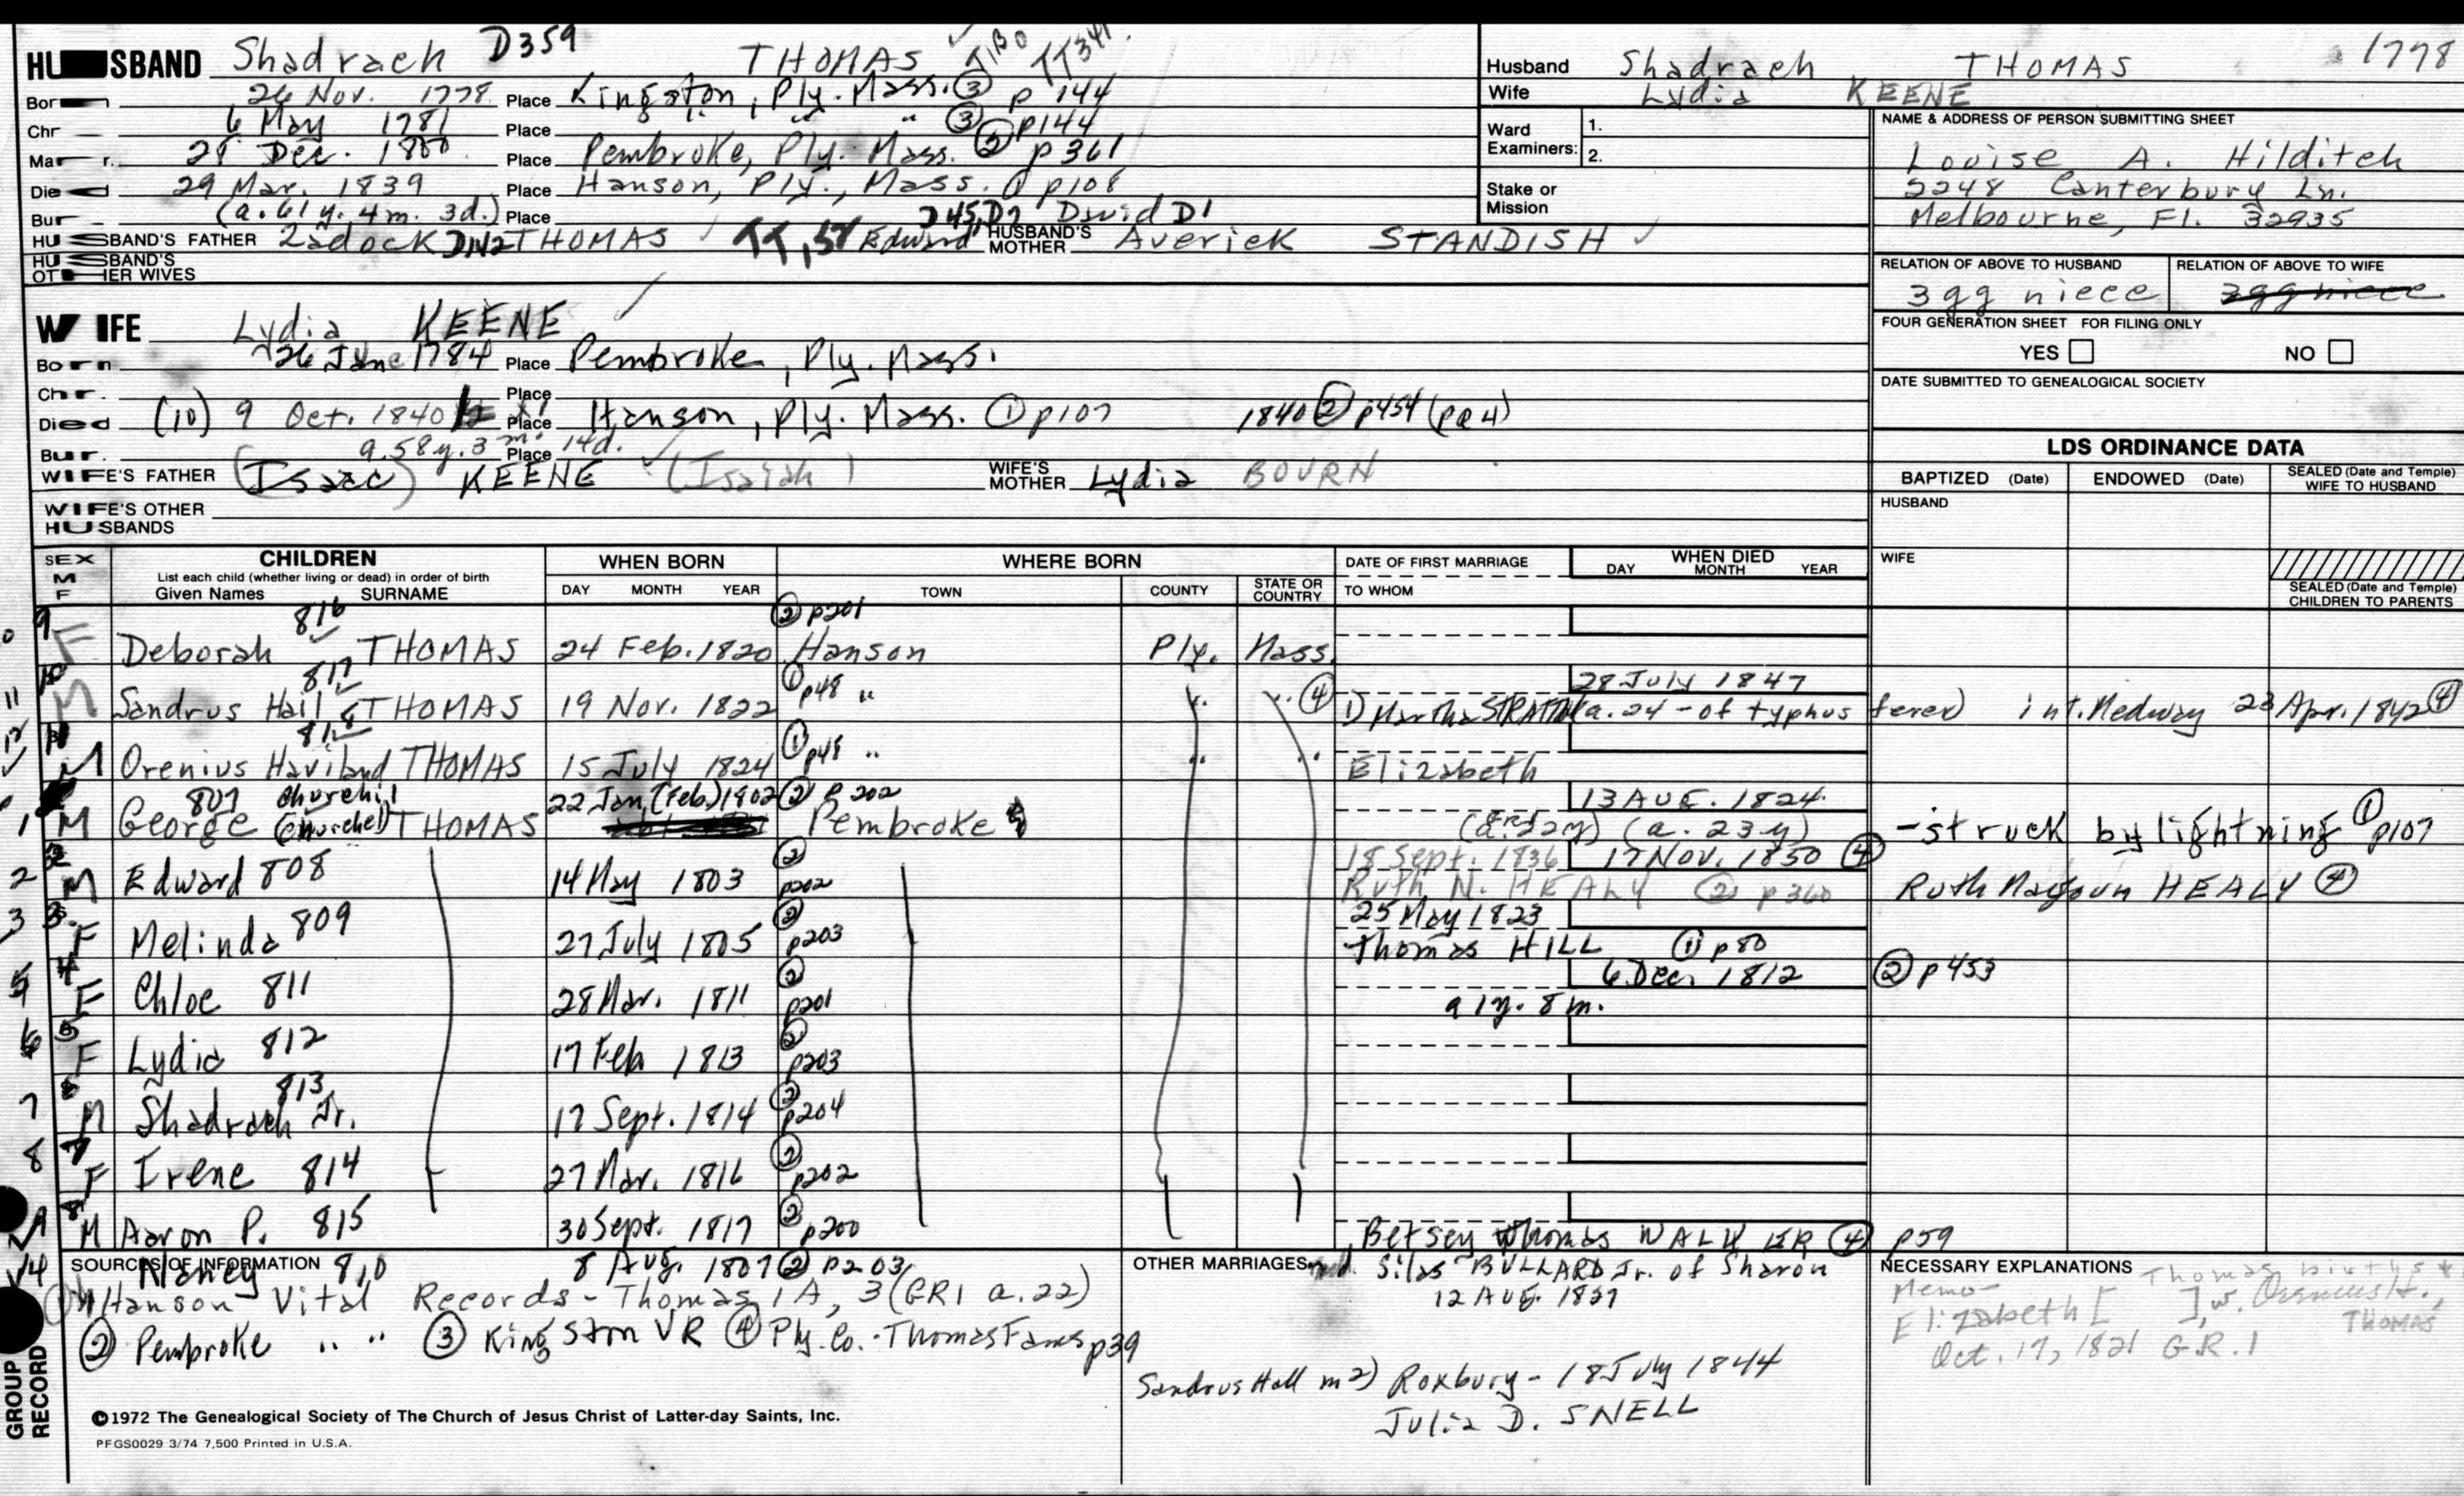 HUSBAND Shadrach D359 THOMAS
Born 26 Nov. 1778. Place Kingston, Ply. Mass. ③ p 144
Chr 6 May 1781 Place " " " ③ p144
Marr. 28 Dec. 1800 Place Pembroke, Ply. Mass. ② p 361
Died 29 Mar. 1839 Place Hanson, Ply., Mass. ① p108
Bur (a. 61 y. 4 m. 3d.) Place David D1
HUSBAND'S FATHER Zadock THOMAS Edward HUSBAND'S MOTHER Averick STANDISH
HUSBAND'S OTHER WIVES
Husband Shadrach THOMAS 1778
Wife Lydia KEENE
Ward Examiners: 1.
2.
Stake or Mission
NAME & ADDRESS OF PERSON SUBMITTING SHEET
Louise A. Hilditch
2248 Canterbury Ln.
Melbourne, Fl. 32935
RELATION OF ABOVE TO HUSBAND RELATION OF ABOVE TO WIFE
3gg niece 3gg niece
FOUR GENERATION SHEET FOR FILING ONLY
YES NO
DATE SUBMITTED TO GENEALOGICAL SOCIETY
WIFE Lydia KEENE
Born 26 June 1784 Place Pembroke, Ply. Mass.
Chr. Place
Died (10) 9 Oct. 1840 Place Hanson, Ply. Mass. ① p107 1840 ② p454 (
Bur. a. 58 y. 3 m. 14d. Place
WIFE'S FATHER (Isaac) KEENE (Isaiah) WIFE'S MOTHER Lydia BOURN
WIFE'S OTHER HUSBANDS
LDS ORDINANCE DATA
BAPTIZED (Date) ENDOWED (Date) SEALED (Date and Temple) WIFE TO HUSBAND
HUSBAND
WIFE
SEALED (Date and Temple) CHILDREN TO PARENTS
SEX M F CHILDREN WHEN BORN WHERE BORN DATE OF FIRST MARRIAGE WHEN DIED
List each child (whether living or dead) in order of birth
Given Names SURNAME DAY MONTH YEAR TOWN COUNTY STATE OR COUNTRY TO WHOM DAY MONTH YEAR
9 816 ② p201
F Deborah THOMAS 24 Feb. 1820 Hanson Ply. Mass.
10 817 ① p48 28 July 1847
11 M Sandrus Hail THOMAS 19 Nov. 1822 " " " ④ 1) Martha STRATTON (a. 24 - of typhus fever) int. Medway 23 Apr. 1842 ④
818 ① p48
M Orenius Haviland THOMAS 15 July 1824 " " " Elizabeth
807 Churchil 22 Jan (Feb) 1802 ② p 202 13 AUG. 1824
1 M George (Churchel) THOMAS Pembroke (a. 23 y) - struck by lightning ① p107
18 Sept. 1836 17 Nov. 1850 ④
2 M Edward 808 14 May 1803 ② p202 Ruth N. HEALY ② p 360 Ruth HEALY ④
25 May 1823
3 F Melinda 809 27 July 1805 ② p203 Thomas HILL ① p80
6 Dec. 1812 ② p453
5 4 F Chloe 811 28 Mar. 1811 ② p201 a 1 y. 8 m.
6 5 F Lydia 812 17 Feb 1813 ② p203
7 6 M Shadrach Jr. 813 17 Sept. 1814 ② p204
8 7 F Irene 814 27 Mar. 1816 ② p202
8 M Aaron P. 815 30 Sept. 1817 ② p200 Betsey Thomas WALKER ④ p59
4 Nancy 810 8 Aug. 1807 ② p203 m. Silas BULLARD Jr. of Sharon
12 AUG. 1827
SOURCES OF INFORMATION
① Hanson Vital Records - Thomas 1 A, 3 (GR1 a. 22)
② Pembroke " " ③ Kingston VR ④ Ply. Co. - Thomas Fams p39
OTHER MARRIAGES
Sandrus Hall m 2) Roxbury - 18 July 1844
Julia D. SNELL
NECESSARY EXPLANATIONS
Memo -
Elizabeth [ ] w. Orenius H. THOMAS
Oct. 17, 1821 G.R.1
GROUP RECORD
©1972 The Genealogical Society of The Church of Jesus Christ of Latter-day Saints, Inc.
PFGS0029 3/74 7,500 Printed in U.S.A.